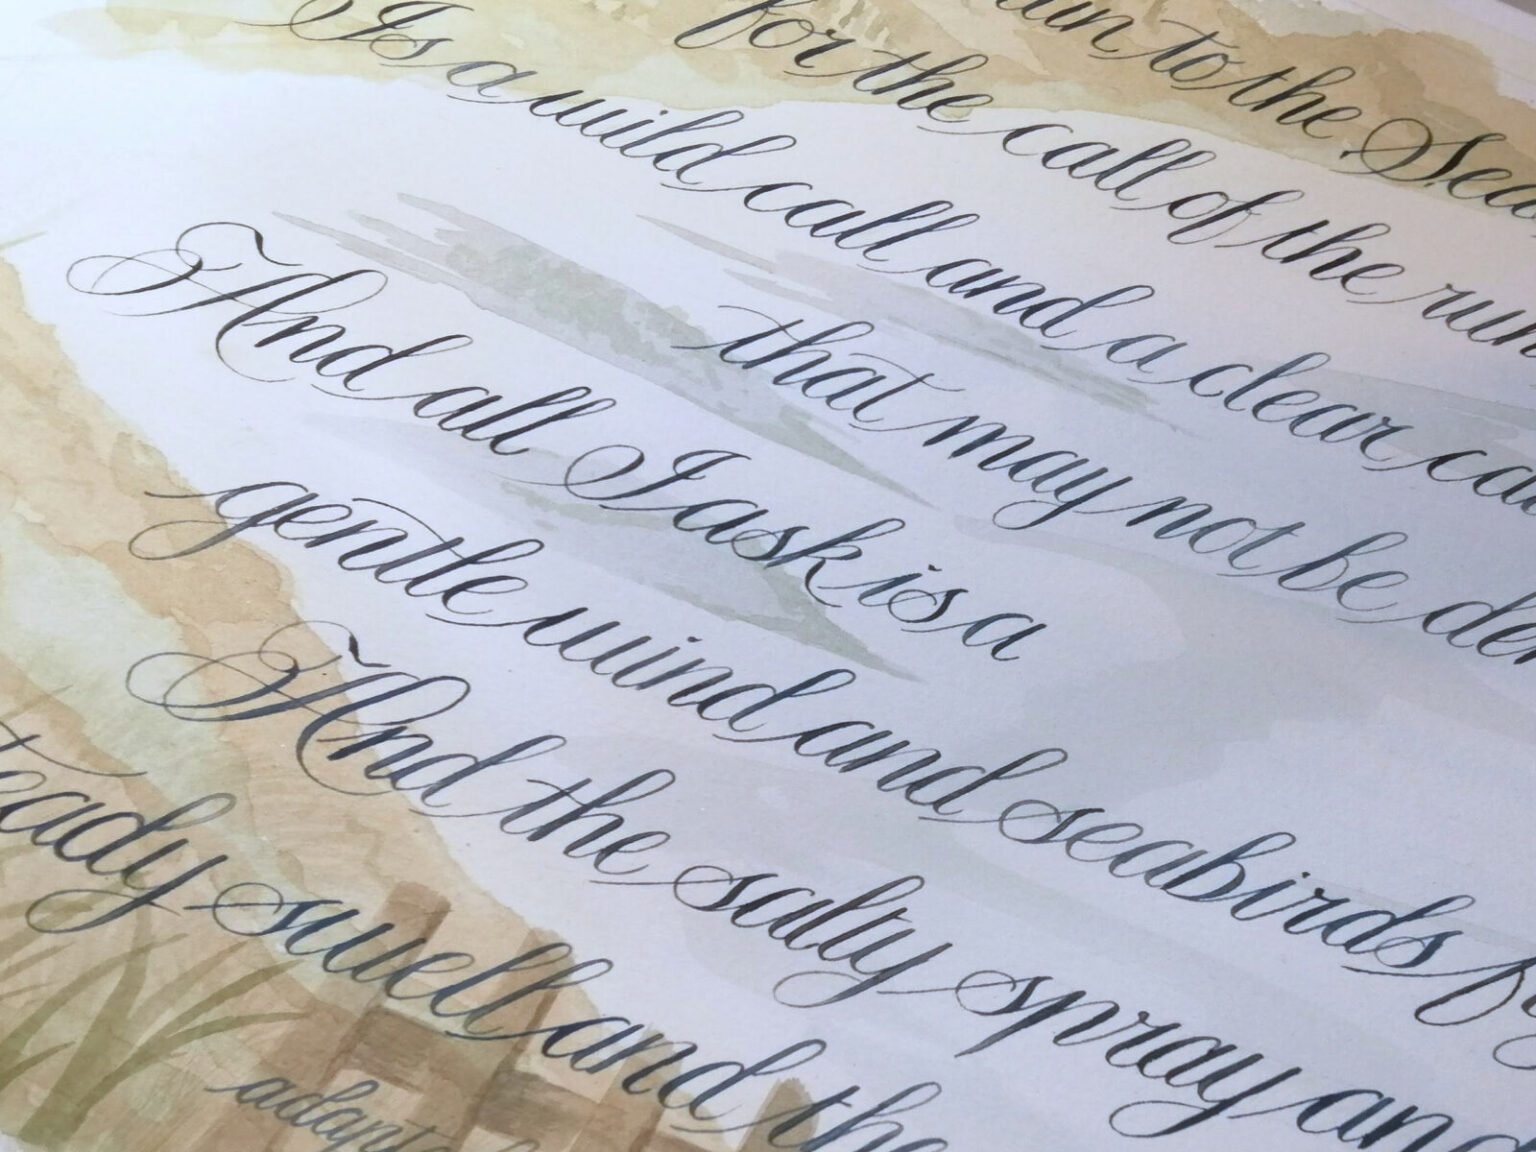 to the Sea
for the call of the run
Is a wild call and a clear ca
that may not be de
And all I ask is a
gentle wind and seabirds
And the salty spray an
teady swell and the
adapt